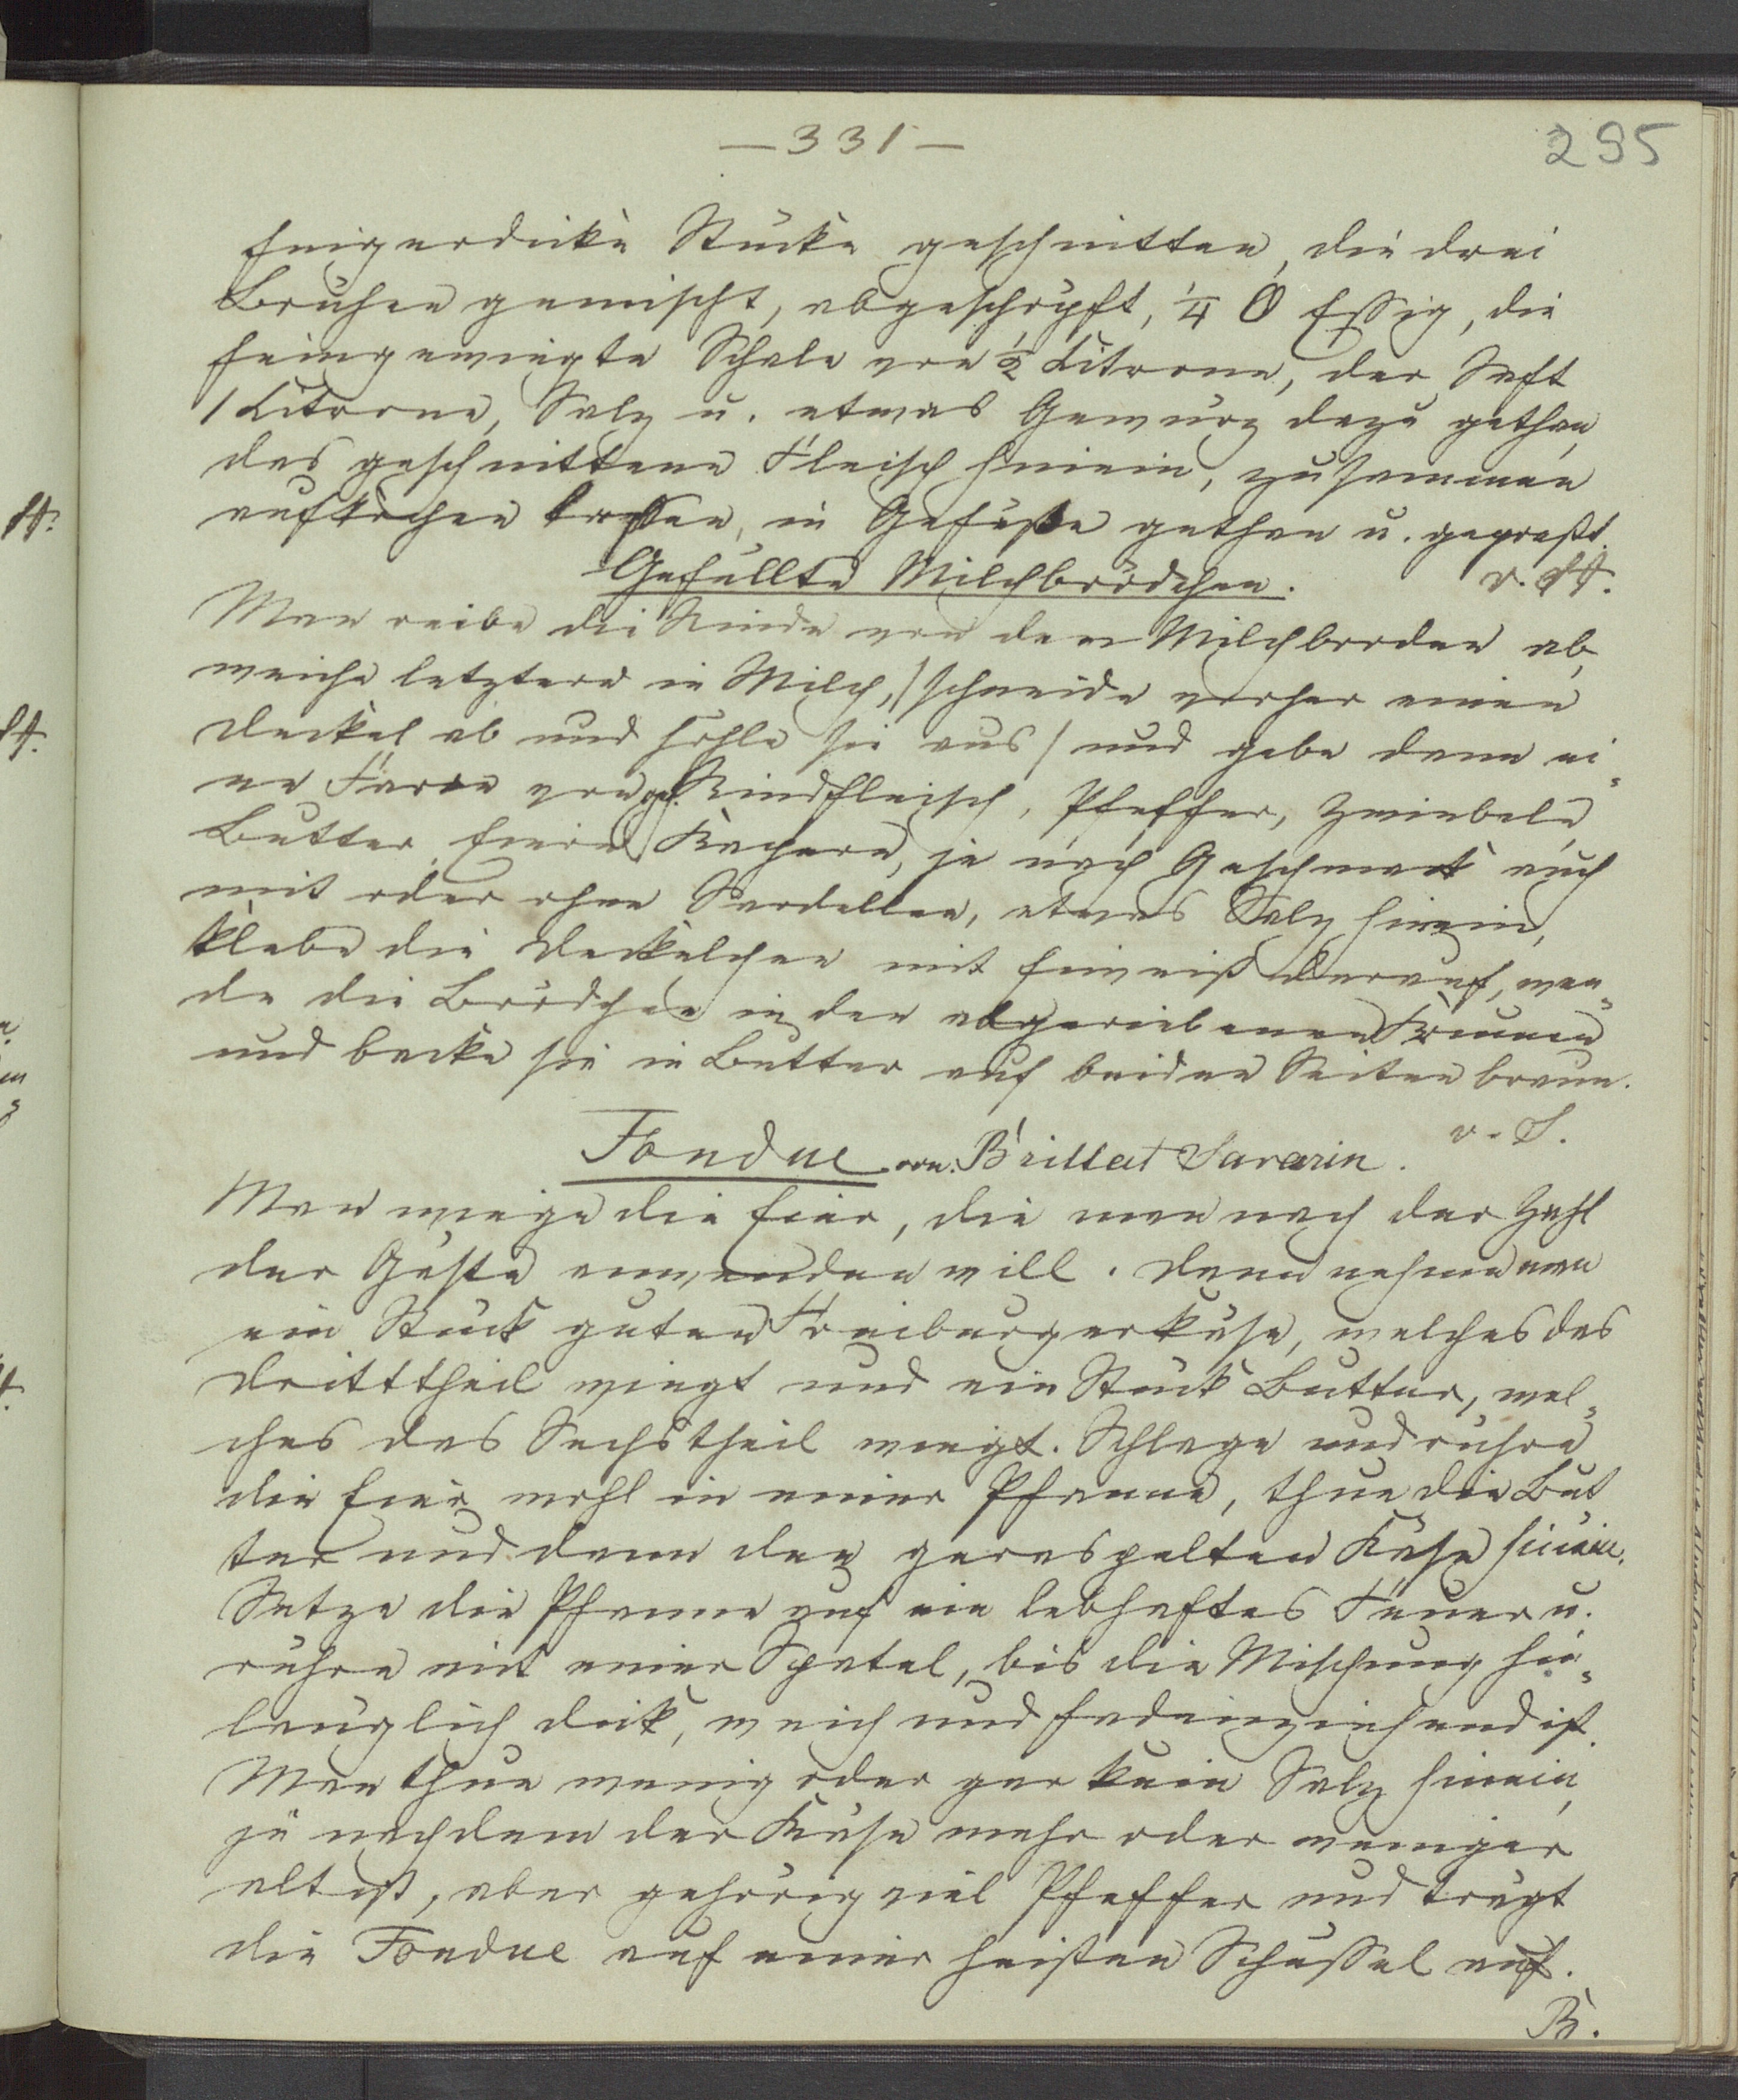 — 331 —
295
fingerdicke Stücke geschnitten, die drei
Brühen gemischt, abgeschöpft, 1/4 O Essig, die
feingewiegte Schale von 1/2 Citrone, der Saft
1 Citrone, Salz u. etwas Gewürz dazu gethan,
das geschnittene Fleisch hinein, zusammen
aufkochen lassen, in Gefäße gethan u. gepreßt.
v. St.
Gefüllte Milchbrödchen.
Man reibe die Rinde von den Milchbroden ab,
weiche letztere in Milch, / schneide vorher einen
Deckel ab und höhle sie aus / und gebe dann ei=
ne Farce von geh. Rindfleisch, Pfeffer, Zwiebeln,
Butter, Eiern, Kapern, je nach Geschmack auch
mit oder ohne Sardellen, etwas Salz hinein,
klebe die Deckelchen mit Eiweiß darauf, wen=
de die Brödchen in den abgeriebenen Krumen
und backe sie in Butter auf beiden Seiten braun.
v. S.
Fondue von Brillat Savarin.
Man wiege die Eier, die man nach der Zahl
der Gäste anwenden will. Dann nehme man
ein Stück guten Freiburgerkäse, welches das
Dritttheil wiegt und ein Stück Butter, wel=
ches das Sechstheil wiegt. Schlage und rühre
die Eier wohl in einer Pfanne, thue die But
ter und dann den geraspelten Käse hinein.
Setze die Pfanne auf ein lebhaftes Feuer u.
rühre mit einer Spatel, bis die Mischung hin=
länglich dick, weich und fadenziehend ist.
Man thue wenig oder gar kein Salz hinein,
je nachdem der Käse mehr oder weniger
alt ist, aber gehörig viel Pfeffer und trägt
die Fondue auf einer heißen Schüssel auf.
B.